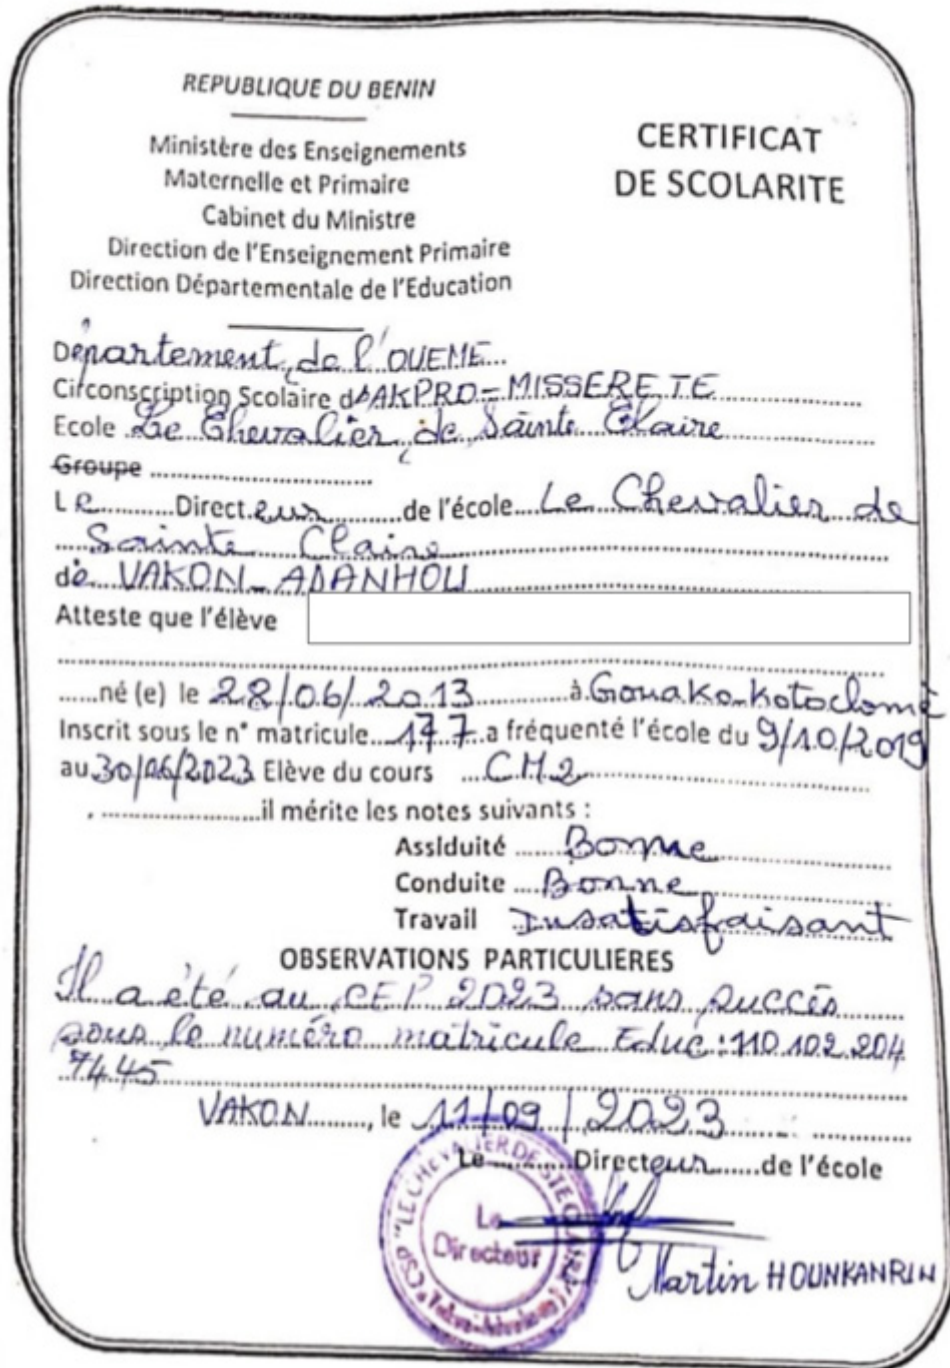 REPUBLIQUE DU BENIN
Ministère des Enseignements
Maternelle et Primaire
Cabinet du Ministre
Direction de l'Enseignement Primaire
Direction Départementale de l'Education
CERTIFICAT
DE SCOLARITE
Département de l'OUEME
Circonscription Scolaire d'AKPRO-MISSERETE
Ecole Le Chevalier de Sainte Claire
Groupe
Le Directeur de l'école Le Chevalier de
Sainte Claire
de VAKON-ADANHOU
Atteste que l'élève
né (e) le 28/06/2013 à Gouako-kotoclomè
Inscrit sous le n° matricule 177 a fréquenté l'école du 9/10/2019
au 30/06/2023 Elève du cours CM2
, il mérite les notes suivants :
Assiduité Bonne
Conduite Bonne
Travail Insatisfaisant
OBSERVATIONS PARTICULIERES
Il a été au CEP 2023 sans succès
sous le numéro matricule Educ : 110 102 204
7445
VAKON, le 11/09/2023
Le Directeur de l'école
CSP "LE CHEVALIER DE STE CLAIRE"
Le
Directeur
Martin HOUNKANRIN